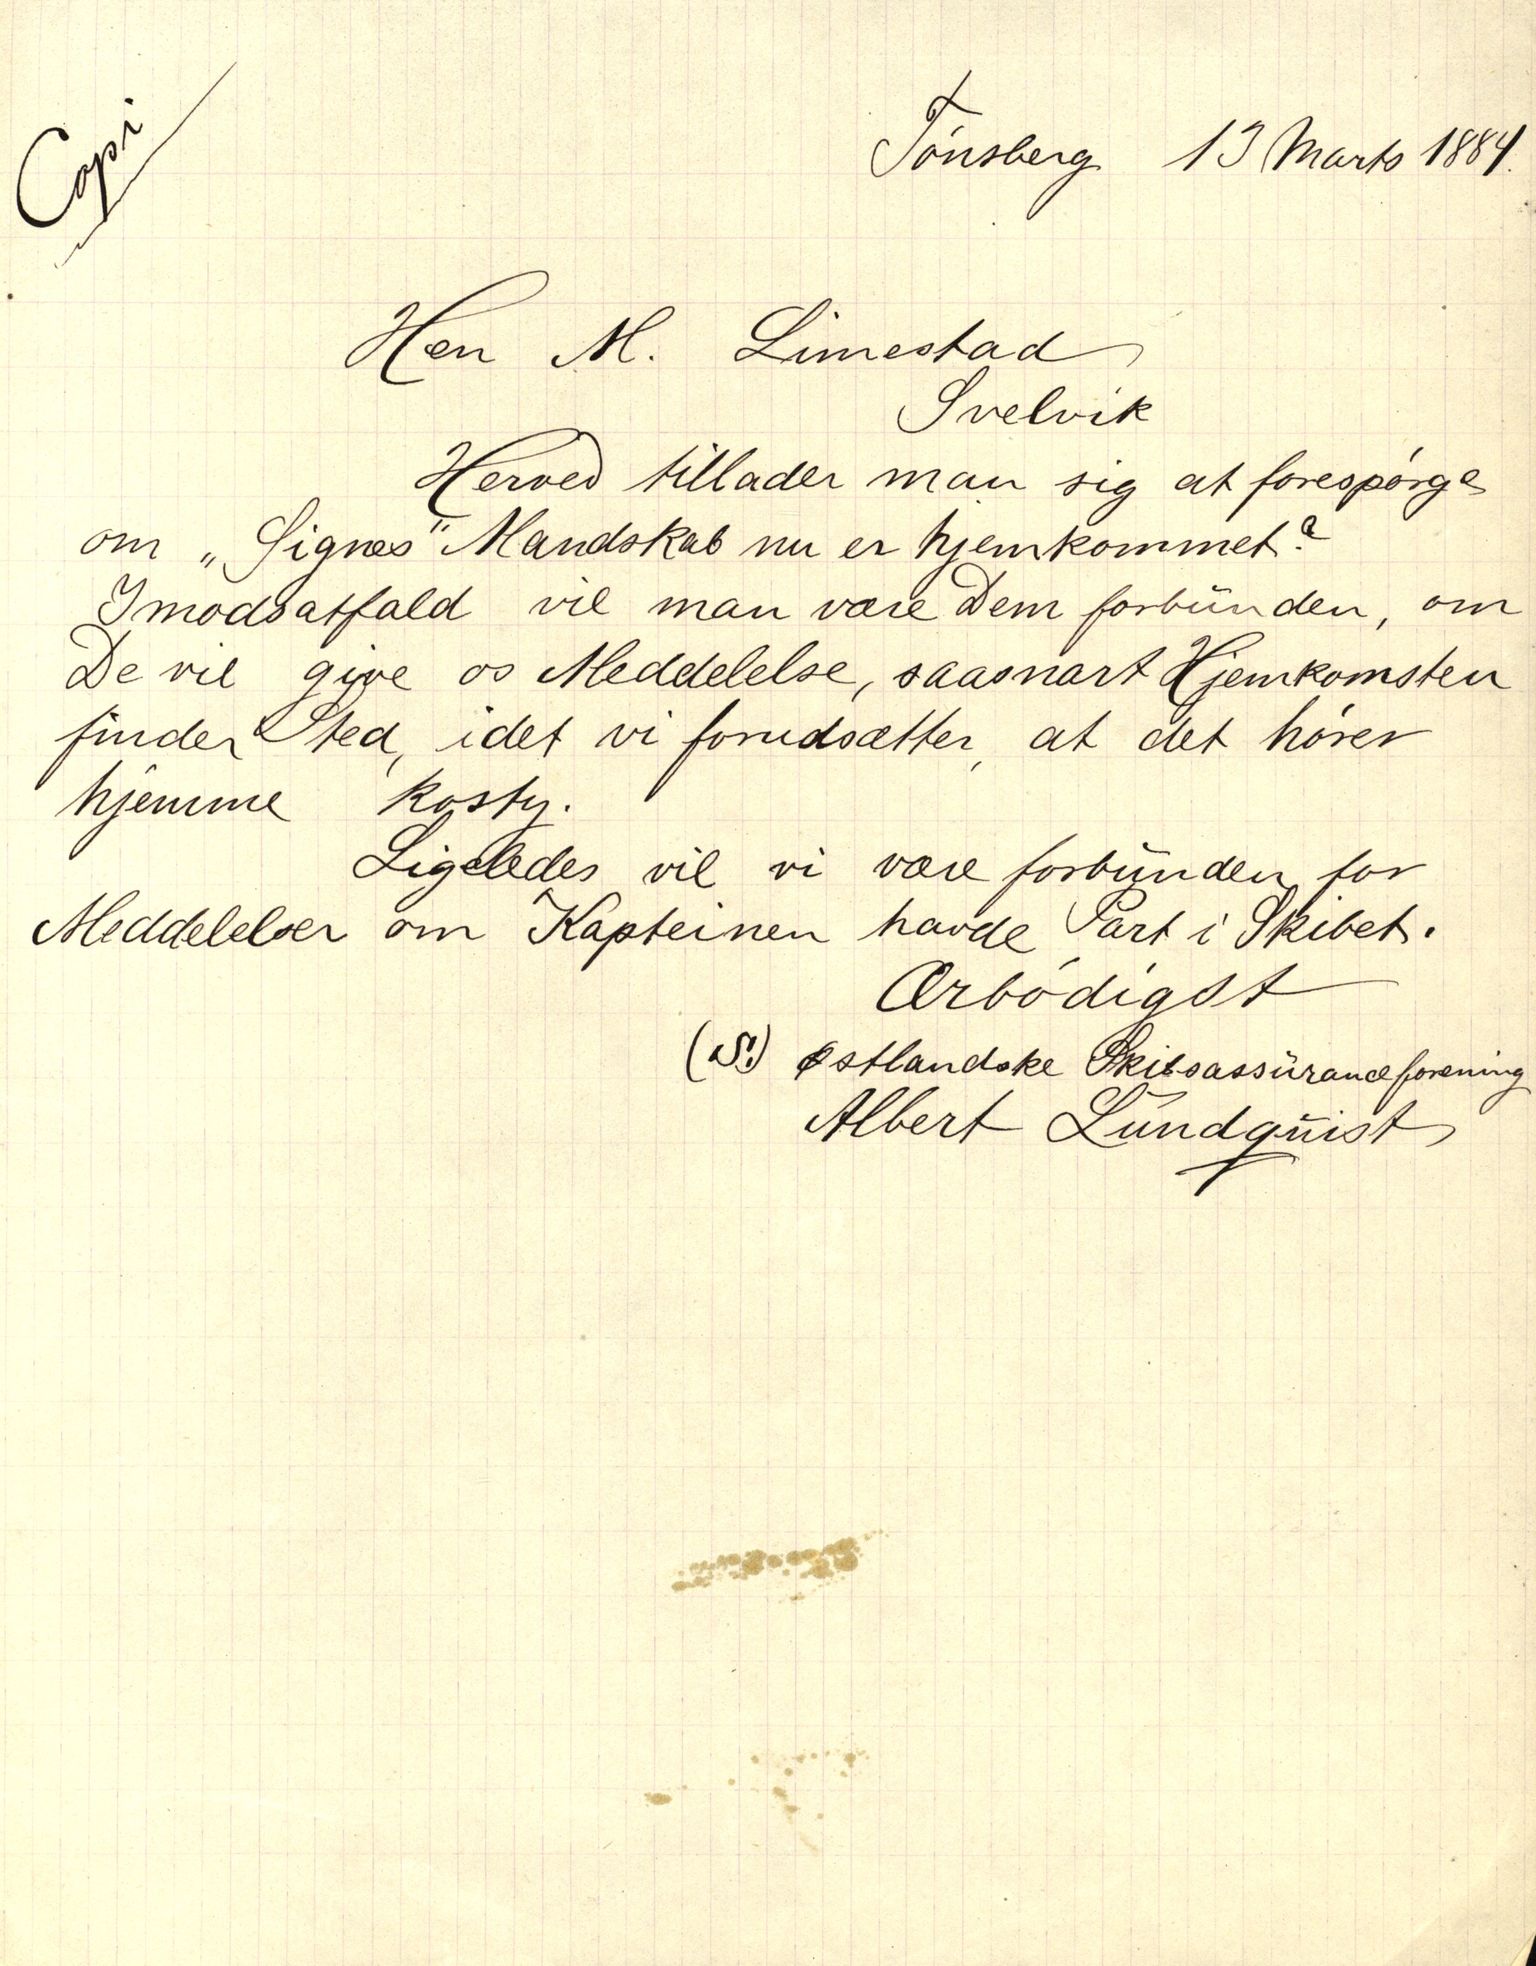 Copi
Tönsberg 13 Marts 1884.
Herr M. Limestad
Svelvik
Herved tillader man sig at forespörge
om „Signes" Mandskab nu er hjemkommet?
Imodsatfald vil man være Dem forbünden, om
De vil give os Meddelelse, saasnart Hjemkomsten
finder Sted, idet vi forudsætter, at det hörer
hjemme
Ligeledes vil vi være forbünden for
Meddelelser om Kapteinen havde Part i Skibet.
Ærbödigst
(S!) Østlandske Skibsassüranceforening
Albert Lündqüist